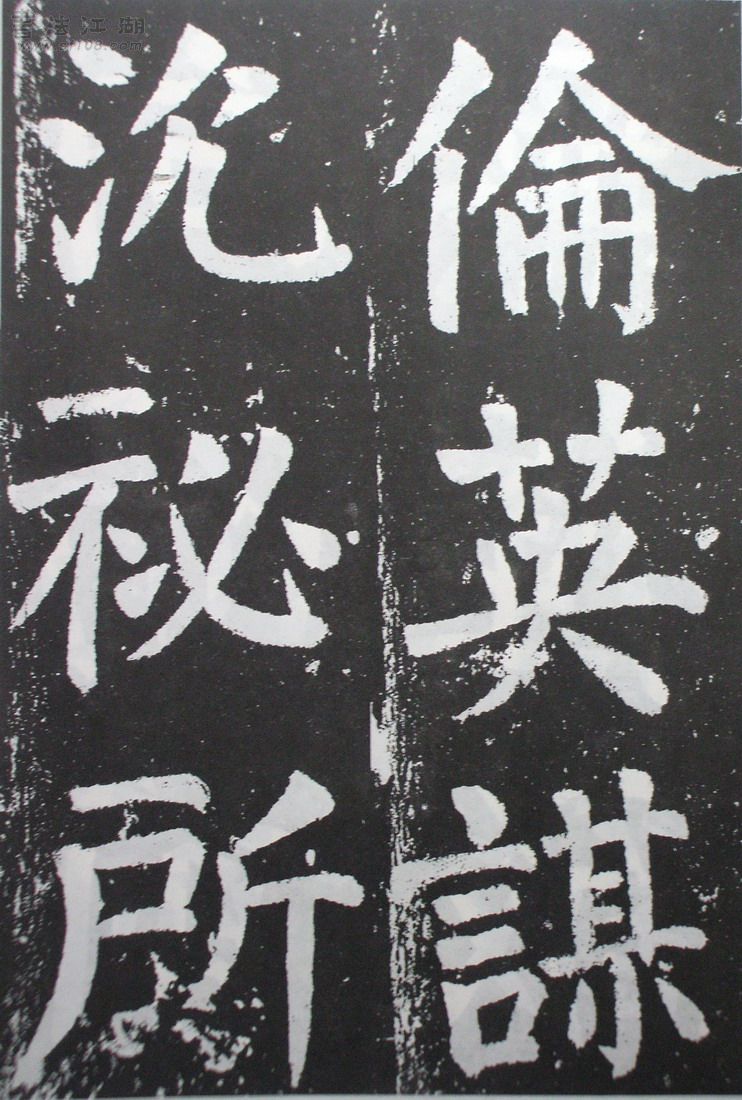 倫英謀
沉祕所
書法江湖
www.sf108.com